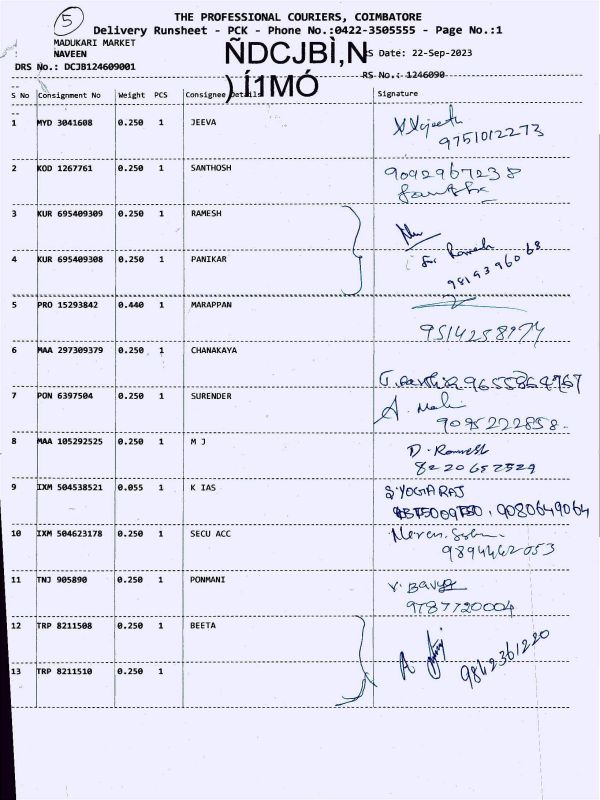 5
THE PROFESSIONAL COURIERS, COIMBATORE
Delivery Runsheet - PCK - Phone No.:0422-3505555 - Page No.:1
MADUKARI MARKET
NAVEEN
ÑDCJBÌ,N
RS Date: 22-Sep-2023
DRS No.: DCJB124609001
) Í1MÓ
RS No.: 1246090
S No Consignment No Weight PCS Consignee Details Signature
1 MYD 3041608 0.250 1 JEEVA
9751012273
2 KOD 1267761 0.250 1 SANTHOSH 9092967238
3 KUR 695409309 0.250 1 RAMESH
for Ramesh
4 KUR 695409308 0.250 1 PANIKAR 9819396068
5 PRO 15293842 0.440 1 MARAPPAN
6 MAA 297309379 0.250 1 CHANAKAYA
7 PON 6397504 0.250 1 SURENDER
9095222858
8 MAA 105292525 0.250 1 M J D. Ramesh
8220652529
9 IXM 504538521 0.055 1 K IAS S YOGARAJ
9080649064
10 IXM 504623178 0.250 1 SECU ACC
9894462053
11 TNJ 905890 0.250 1 PONMANI
9787720004
12 TRP 8211508 0.250 1 BEETA
9842361220
13 TRP 8211510 0.250 1